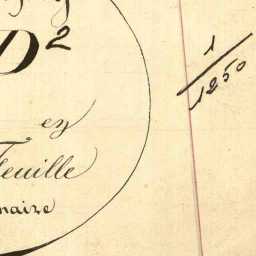 D²
1/1250
en
Feuille
naire